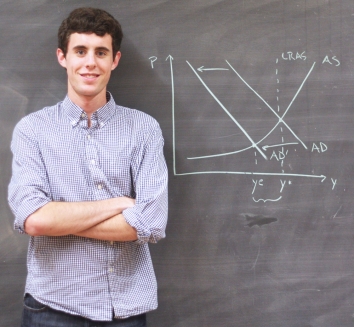 P
LRAS
AS
AD'
AD
ye
y*
y